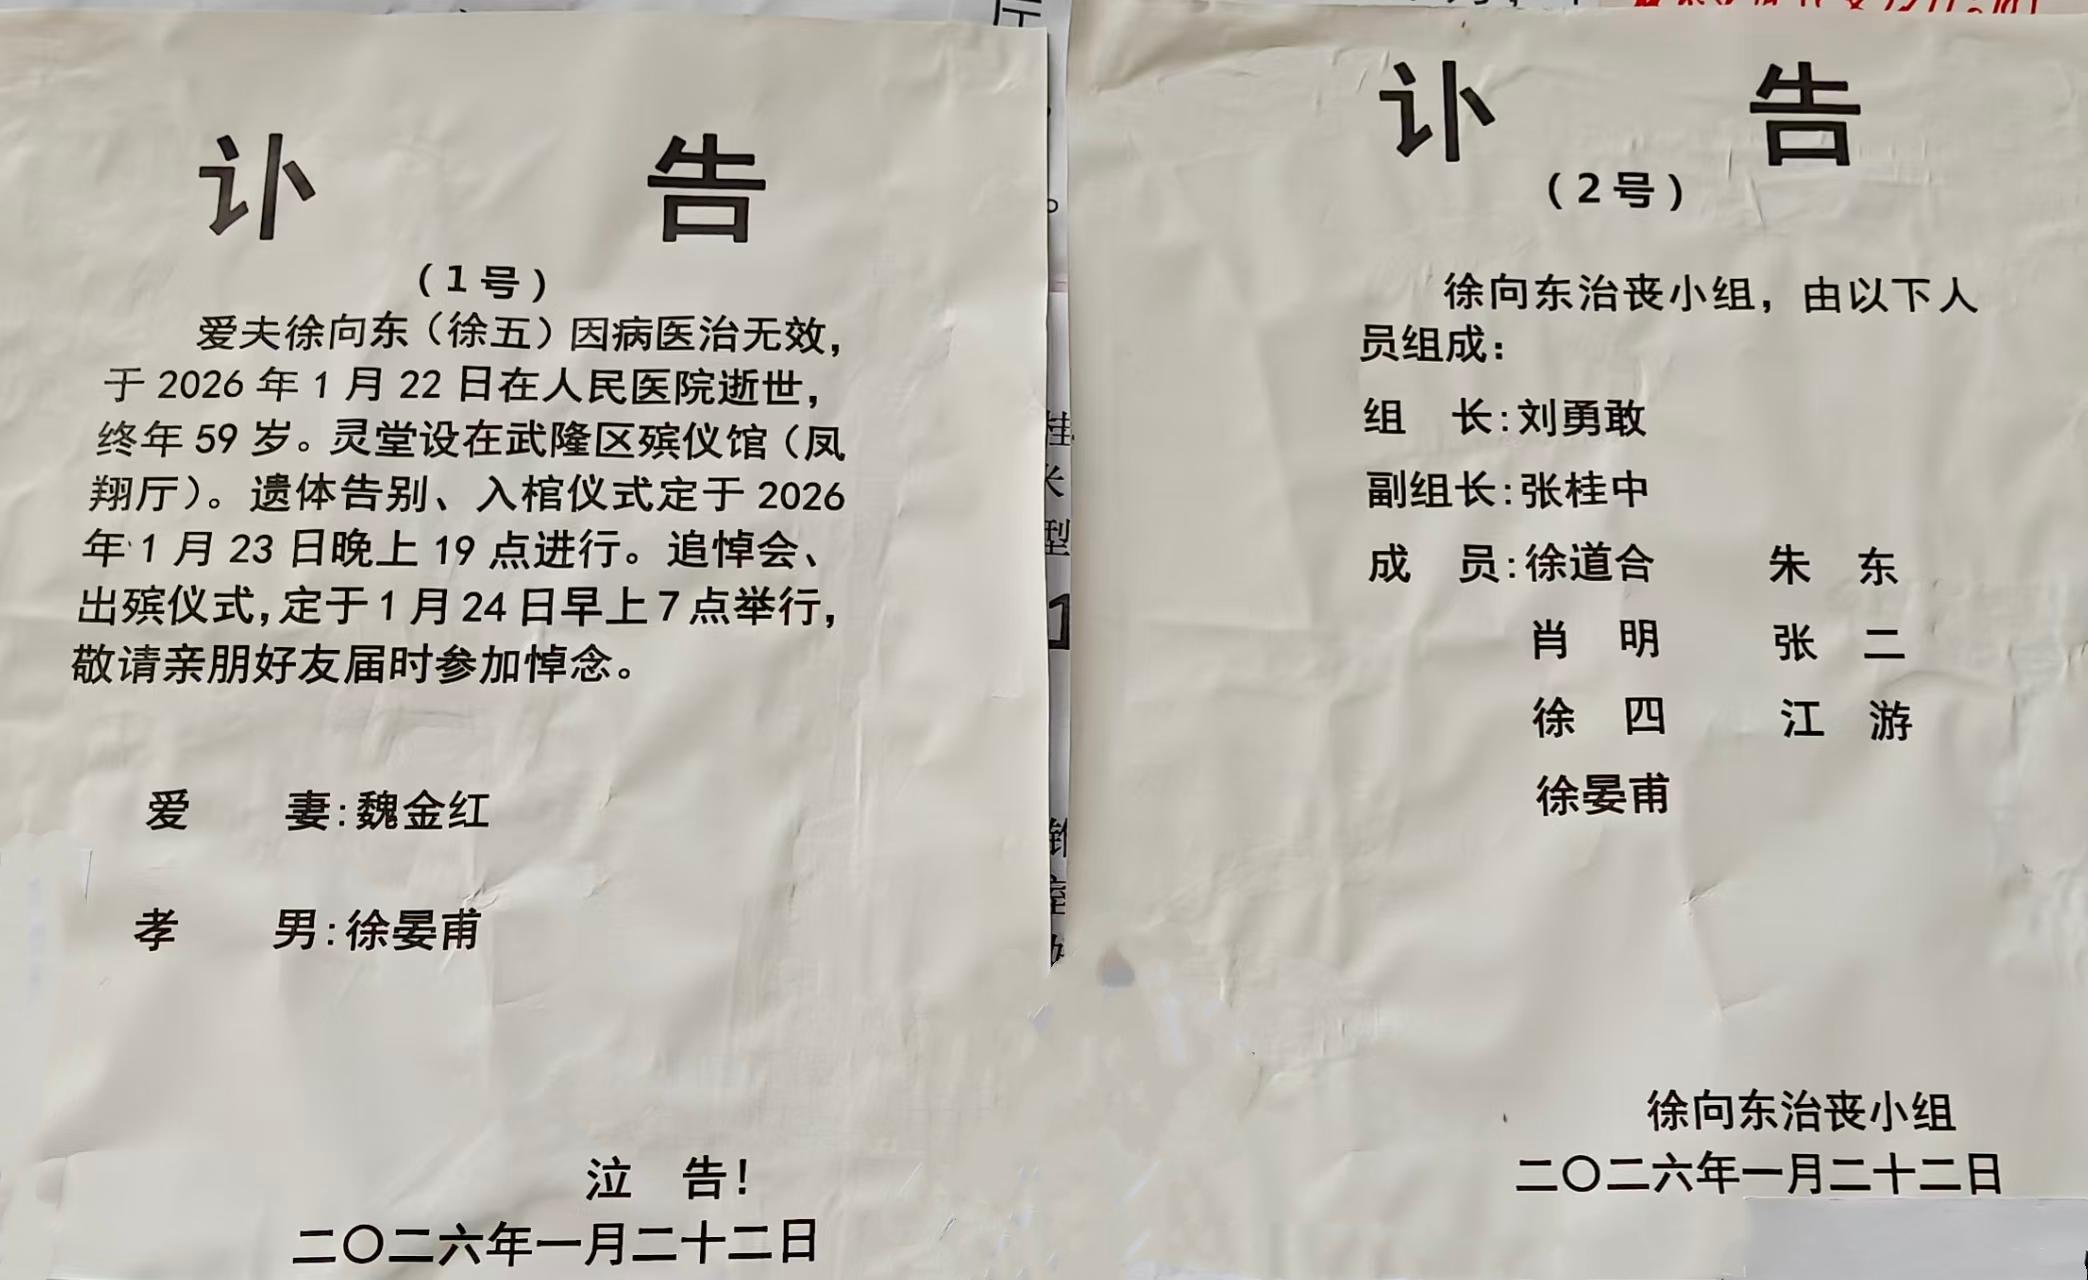 讣 告
（1号）
爱夫徐向东（徐五）因病医治无效，
于 2026 年 1 月 22 日在人民医院逝世，
终年 59 岁。灵堂设在武隆区殡仪馆（凤
翔厅）。遗体告别、入棺仪式定于 2026
年 1 月 23 日晚上 19 点进行。追悼会、
出殡仪式，定于 1 月 24 日早上 7 点举行，
敬请亲朋好友届时参加悼念。
爱 妻：魏金红
孝 男：徐晏甫
泣 告！
二〇二六年一月二十二日
讣 告
（2号）
徐向东治丧小组，由以下人
员组成：
组 长：刘勇敢
副组长：张桂中
成 员：徐道合 朱 东
肖 明 张 二
徐 四 江 游
徐晏甫
徐向东治丧小组
二〇二六年一月二十二日